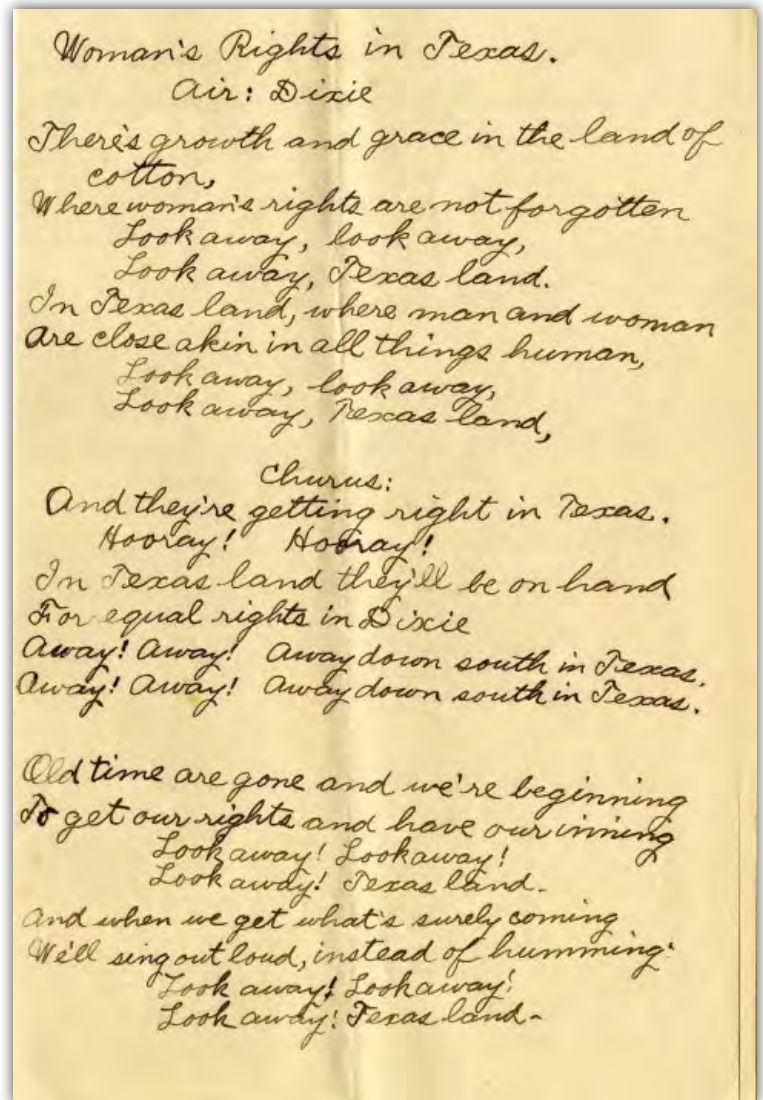 Woman's Rights in Texas.
Air: Dixie
There's growth and grace in the land of
cotton,
Where woman's rights are not forgotten
Look away, look away,
Look away, Texas land.
In Texas land, where man and woman
Are close akin in all things human,
Look away, look away,
Look away, Texas land,
Churus:
And they're getting right in Texas.
Hooray! Hooray!
In Texas land they'll be on hand
For equal rights in Dixie
Away! Away! Away down south in Texas.
Away! Away! Away down south in Texas.
Old time are gone and we're beginning
To get our rights and have our inning
Look away! Look away!
Look away! Texas land.
And when we get what's surely coming
We'll sing out loud, instead of humming:
Look away! Look away!
Look away! Texas land-